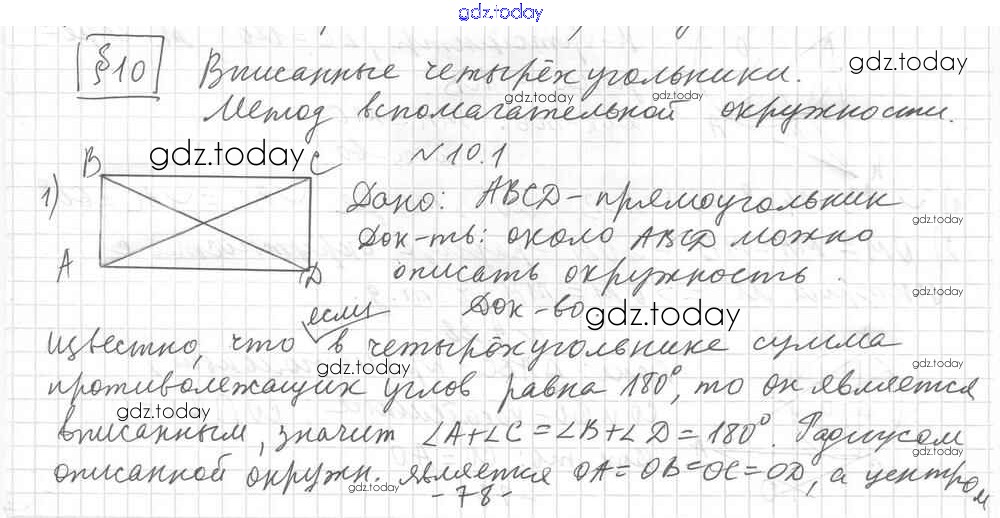 gdz.today
§10 Вписанные четырёхугольники.
gdz.today
gdz.today gdz.today
Метод вспомагательной окружности.
gdz.today
№10.1
1) B C A D
Дано: ABCD - прямоугольник
gdz.today
Док-ть: около ABCD можно
описать окружность.
gdz.today
Док-во
gdz.today
если
известно, что в четырёхугольнике сумма
gdz.today
gdz.today
противолежащих углов равна 180°, то он является
gdz.today
gdz.today
вписанным, значит ∠A+∠C=∠B+∠D=180°. Радиусом
описанной окружн. является OA=OB=OC=OD, а центром
gdz.today
gdz.today
-78-